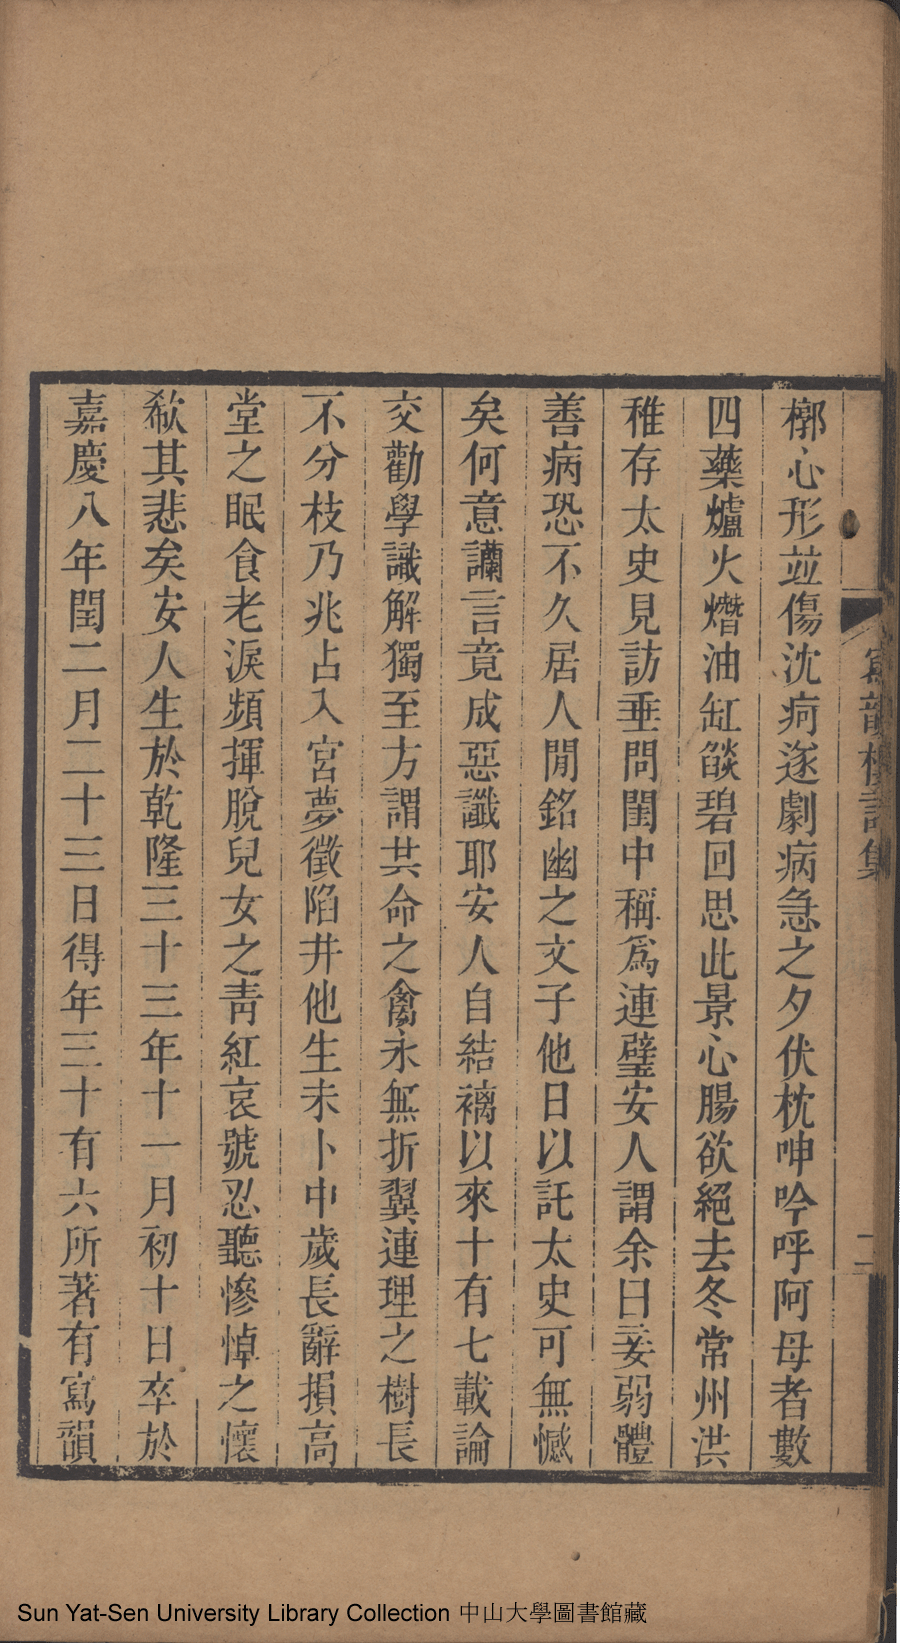 寫韻樓詩集
二
槨心形並傷沈痾逐劇病急之夕伏枕呻吟呼阿母者數
四藥爐火熸油缸燄碧回思此景心腸欲絕去冬常州洪
稚存太史見訪垂問閨中稱爲連璧安人謂余曰妾弱體
善病恐不久居人閒銘幽之文子他日以託太史可無憾
矣何意讕言竟成惡讖耶安人自結褵以來十有七載論
交勸學識解獨至方謂共命之禽永無折翼連理之樹長
不分枝乃兆占入宮夢徵陷井他生未卜中歲長辭損高
堂之眠食老淚頻揮脫兒女之靑紅哀號忍聽慘悼之懷
欷其悲矣安人生於乾隆三十三年十一月初十日卒於
嘉慶八年閏二月二十三日得年三十有六所著有寫韻
Sun Yat-Sen University Library Collection 中山大學圖書館藏